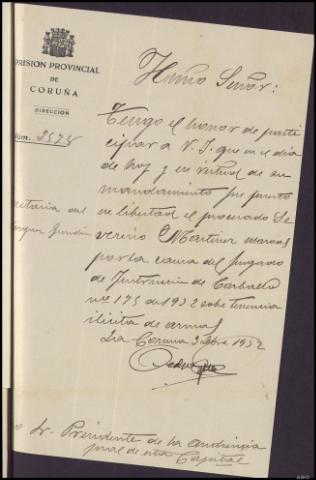 PRISION PROVINCIAL
DE
CORUÑA
DIRECCION
Núm. 2578
Iltmo Señor:
Tengo el honor de parti
cipar a V. I. que en el dia
de hoy y en virtud de su
mandamiento fue puesto
en libertad el procesado Se
verino Martinez
por la causa del Juzgado
de Instrucción de Carballo
nº 175 de 1932 sobre tenencia
ilicita de armas
La Coruña 3 1932
Sr. Presidente de la Audiencia
de esta Capital